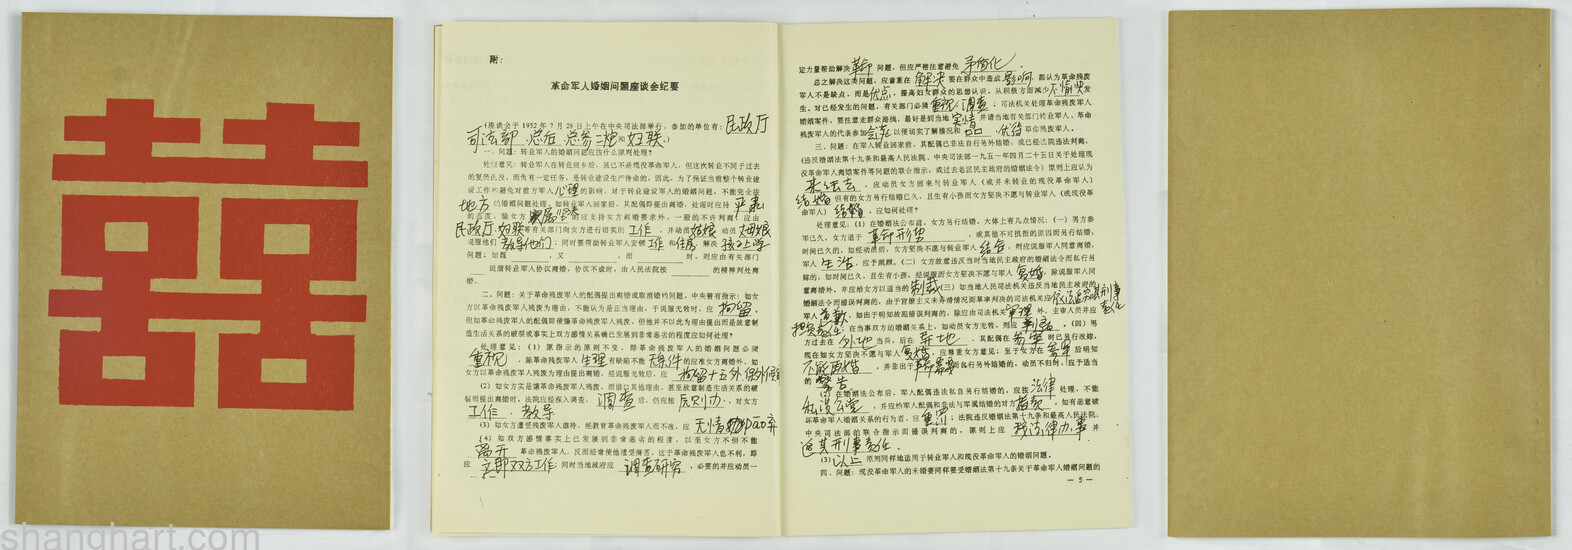 囍
附：
革命军人婚姻问题座谈会纪要
(座谈会于1952年7月28日上午在中央司法部举行，参加的单位有：民政厅
司法部、总后、总参二炮和妇联。)
一、问题：转业军人的婚姻问题应按什么原则处理？
处理意见：转业军人在转业回乡后，虽已不是现役革命军人，但这次转业不同于过去
的复员还没，而负有一定任务，是转业建设生产待命的，因此，为了保证当前整个转业建
设工作和避免对前方军人心理的影响，对于转业建设军人的婚姻问题，不能完全按
地方的婚姻问题处理。如转业军人回家后，其配偶即提出离婚，处理时应持严肃
的态度，除女方 应支持女方的离婚要求外，一般的不许判离；应由
民政厅、妇联等有关部门向女方进行切实的工作，并动员姑娘动员 娘
说服他们教导他们；同时要帮助转业军人安顿工作和住房解决孩子上学
问题；如既 ，又 ，而 时，则应由有关部门
说服转业军人协议离婚，协议不成时，由人民法院按 的精神判处离
婚。
二、问题：关于革命残废军人的配偶提出离婚或取消婚约问题，中央曾有指示：如女
方以革命残废军人残废为理由，不能认为是正当理由，于说服无效时，应拘留。
但如革命残废军人的配偶即使嫌革命残废军人残废，但他并不以此为理由提出而是故意制
造生活关系的破裂或事实上双方感情关系确已发展到非常恶劣的程度应如何处理？
处理意见：(1) 原指示的原则不变，即革命残废军人的婚姻问题必须
重视，除革命残废军人生理有缺陷不能无条件的应准女方离婚外，如
女方以革命残废军人残废为理由提出离婚，经说服无效后，应拘留十五外保外候
(2) 如女方实是嫌革命残废军人残废，而借口其他理由，甚至故意制造生活关系的破
裂而提出离婚时，法院应经深入调查，调查后，仍应按原则办，对女方
工作、教导
(3) 如女方遭受残废军人虐待，经教育革命残废军人而不改，应无情
(4) 如双方感情事实上已发展到非常恶劣的程度，以至女方不但不能
离开革命残废军人，反而经常使他遭受痛苦，这于革命残废军人也不利，即
应立即双方工作；同时当地政府应调查研究，必要的并应动员一
定力量帮助解决革命问题，但应严格注意避免矛盾化。
总之解决这类问题，应着重在解决要在群众中造成影响，都认为革命残废
军人不是缺点，而是优点，提高妇女群众的思想认识，从积极方面减少不愉快发
生。对已经发生的问题，有关部门必须重视、调查；司法机关处理革命残废军人
婚姻案件，要注意走群众路线，最好是到当地实情并请当地有关部门转业军人、革命
残废军人的代表参加 以便切实了解情况和 优待革命残废军人。
三、问题：在军人转业回家前，其配偶已非法自行另外结婚，或已经法院违法判离，
(违反婚姻法第十九条和最高人民法院、中央司法部一九五一年四月二十五日关于处理现
役革命军人离婚案件等问题的联合指示，或过去老区民主政府的婚姻法令) 原则上应认为
来 去，应动员女方回来与转业军人 (或并未转业的现役革命军人)
结婚但有的女方另行结婚已久，且生有小孩而女方坚决不愿与转业军人 (或现役革
命军人) 结婚，应如何处理？
处理意见：(1) 在婚姻法公布前，女方另行结婚，大体上有几点情况：(一) 男方参
军已久，女方迫于革命形势，或其他不可抗拒的原因而另行结婚，
时间已久的，如经动员后，女方坚决不愿与转业军人结合，则应说服军人同意离婚，
军人生活，应予照顾。(二) 女方故意违反当时当地民主政府的婚姻法令而私行另
嫁的，如时间已久，且生有小孩，经说服而女方坚决不愿与军人复婚，除说服军人同
意离婚外，并应给女方以适当的制裁(三) 如当地人民司法机关违反当地民主政府的
婚姻法令而错误判离的，由于官僚主义未弄清情况而草率判决的司法机关应依法追究其刑事
责任
军人道歉，如出于明知故犯错误判离的，除应由司法机关审理外，主审人员并应
担负责任；在当事双方的婚姻关系上，如动员女方无效，则应判离。(四) 男
方过去在外地当兵，后在异地，其配偶在 时已另行改嫁，
现在如女方坚决不愿与军人复婚，应尊重女方意见；至于女方在 后明知
不能再婚，并非出于 而私行另外结婚的，动员不归时，应予适当
的警告。
(2) 在婚姻公布后，军人配偶违法私自另行结婚的，应按法律处理，不能
私设公堂，并应给军人配偶和非法与军属结婚的对方指责，如有恶意破
坏革命军人婚姻关系的行为者，应重罚；法院违反婚姻法第十九条和最高人民法院、
中央司法部的联合指示而错误判离的，原则上应按法律办事并
追其刑事责任。
(3) 以上原则同样地适用于转业军人和现役革命军人的婚姻问题。
四、问题：现役革命军人的未婚妻同样要受婚姻法第十九条关于革命军人婚姻问题的
— 5 —
shanghart.com